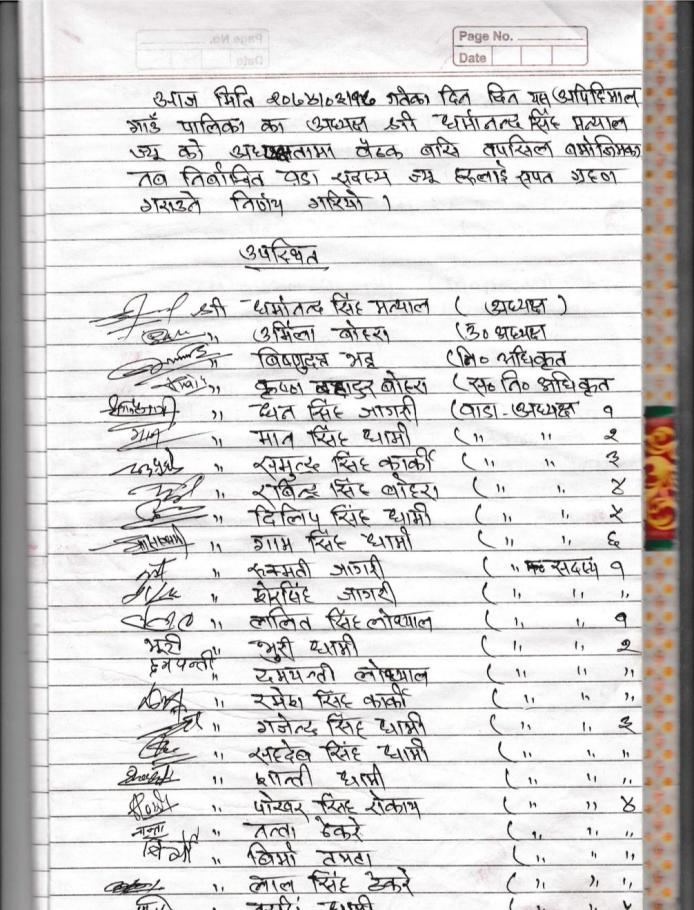 Page No.
Date
आज मिति गतेका दिन यस अपिहिमाल
गाउँ पालिका का अध्यक्ष श्री धर्मानन्द सिंह मन्याल
ज्यू को अध्यक्षतामा बैठक बसि तपसिल बमोजिमका
नव निर्वाचित वडा सदस्य ज्यू हरुलाई सपत ग्रहण
गराउने निर्णय गरियो ।
उपस्थित
श्री धर्मानन्द सिंह मन्याल ( अध्यक्ष )
,, उर्मिला बोहरा (उ० अध्यक्ष
,, बिष्णुदत्त भट्ट (नि० अधिकृत
,, कृपल बहादुर बोहरा (स० नि० अधिकृत
,, धन सिंह जागरी (वाडा - अध्यक्ष १
,, मान सिंह धामी ( ,, ,, २
,, समुन्द्र सिंह कार्की ( ,, ,, ३
,, रबिन्द्र सिंह बोहरा ( ,, ,, ४
,, दिलिप सिंह धामी ( ,, ,, ५
,, गाम सिंह धामी ( ,, ,, ६
,, रुकमती जागरी ( ,, सदस्य १
,, शेरसिंह जागरी ( ,, ,, ,,
,, ललित सिंह लोथ्याल ( ,, ,, १
भुरी ,, भुरी धामी ( ,, ,, २
दमयन्ती ,, दमयन्ती लोथ्याल ( ,, ,, ,,
,, रमेश सिंह कार्की ( ,, ,, ,,
,, गजेन्द्र सिंह धामी ( ,, ,, ३
,, सहदेब सिंह धामी ( ,, ,, ,,
,, शान्ती धामी ( ,, ,, ,,
,, पोखर सिंह रोकाय ( ,, ,, ४
,, नन्ता ठेकरे ( ,, ,, ,,
,, बिर्मा तमटा ( ,, ,, ,,
,, लाल सिंह ठेकरे ( ,, ,, ,,